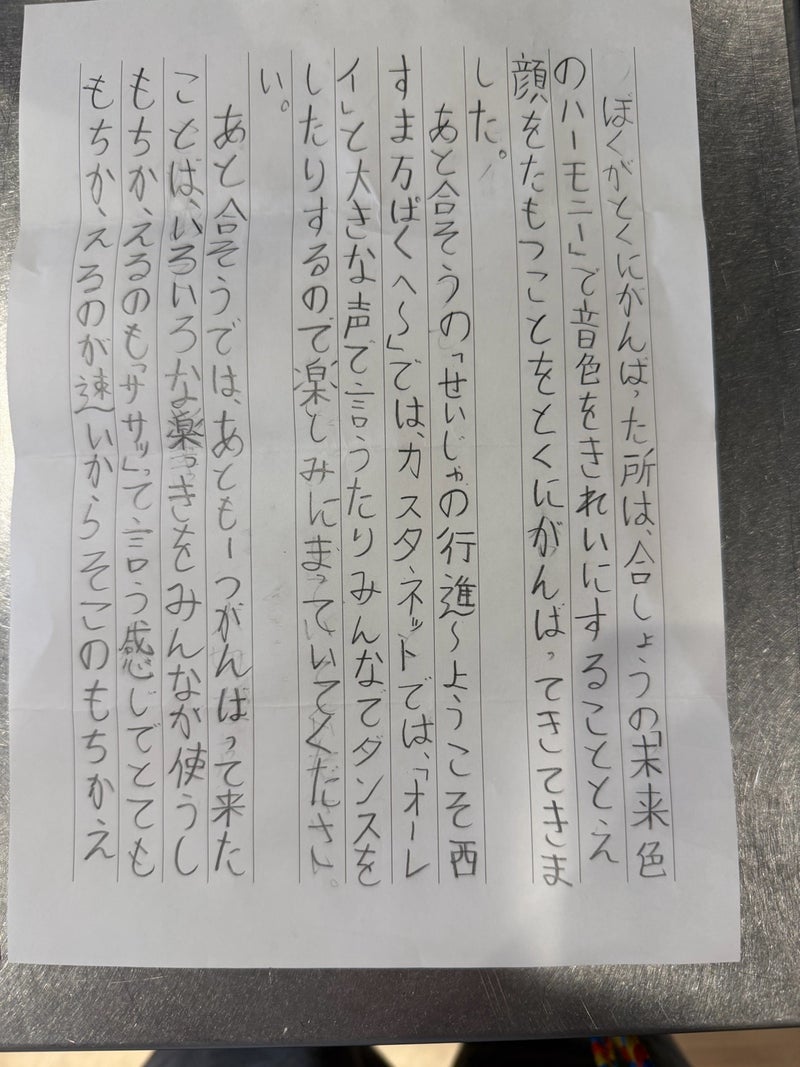 ぼくがとくにがんばった所は、合しょうの「未来色
のハーモニー」で音色をきれいにすることとえ
顔をたもつことをとくにがんばってきてきま
した。
あと合そうの「せいじゃの行進〜ようこそ西
すま万ぱくへ〜」では、カスタネットでは、「オーレ
イ」と大きな声で言うたりみんなでダンスを
したりするので楽しみにまっていてください。
い。
あと合そうでは、あともーつがんばって来た
ことは、いろいろな楽っきをみんなが使うし
もちかえるのも「ササッ」って言う感じでとても
もちかえるのが速いからそこのもちかえ